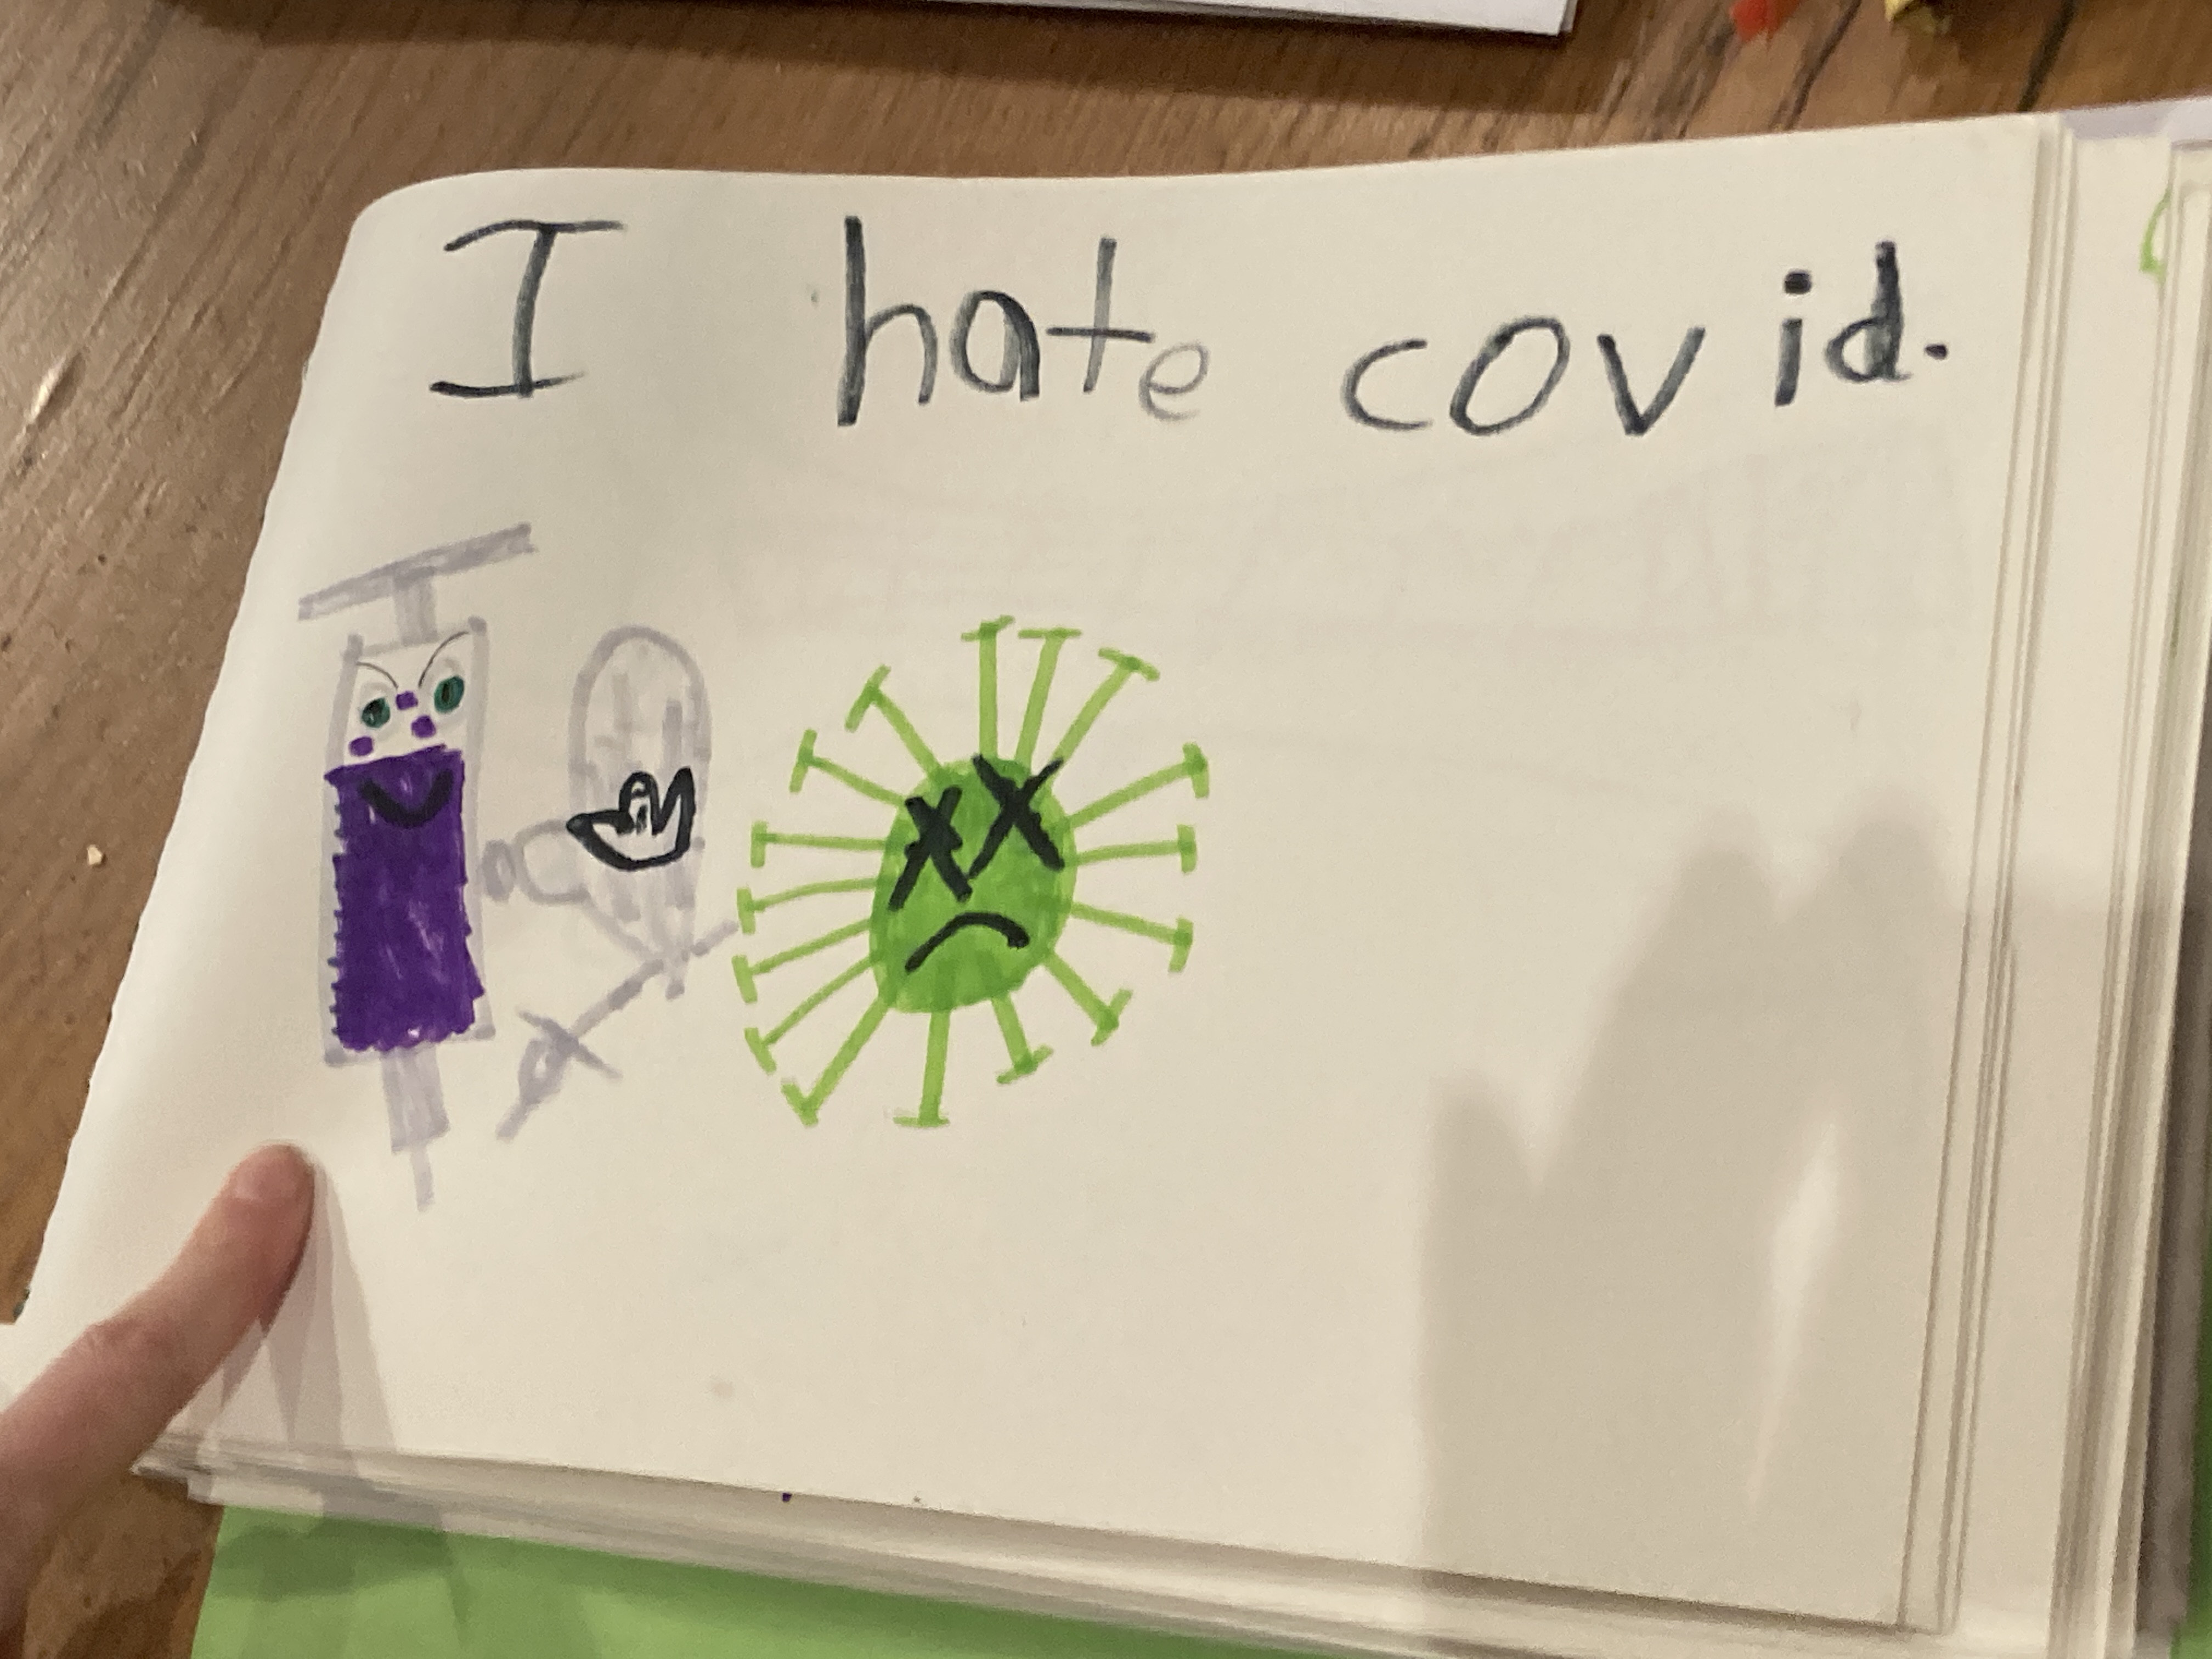 I hate covid.